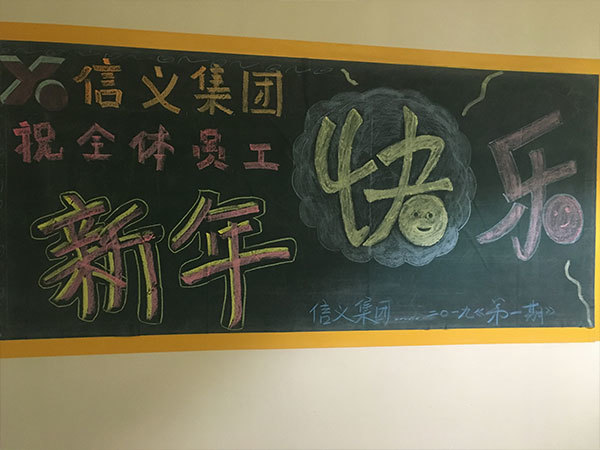 信义集团
祝全体员工
新年快乐
信义集团……二〇一九《第一期》